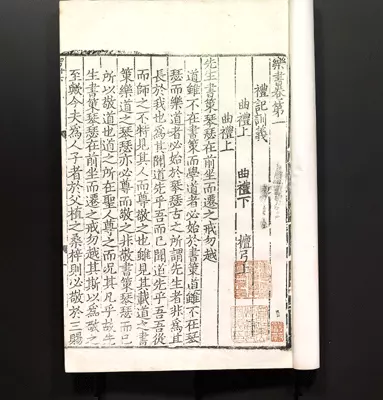 樂書卷第一
禮記訓義
曲禮上　曲禮下　檀弓上
曲禮上
先生書策琴瑟在前坐而遷之戒勿越
道雖不在書策而學道者必始於書策道雖不在琴
瑟而樂道者必始於琴瑟古之所謂先生者非為其
長於我也為其聞道先乎吾而已聞道先乎吾吾從
而師之不特見其人而尊敬之也雖見其載道之書
策樂道之琴瑟亦必尊而敬之非敬書策琴瑟而已
所以敬道也道之所在聖人尊之而況其凡乎故先
生書策琴瑟在前坐而遷之戒勿越其斯以為敬之
至歟今夫為人子者於父植之桑梓則必敬於三賜